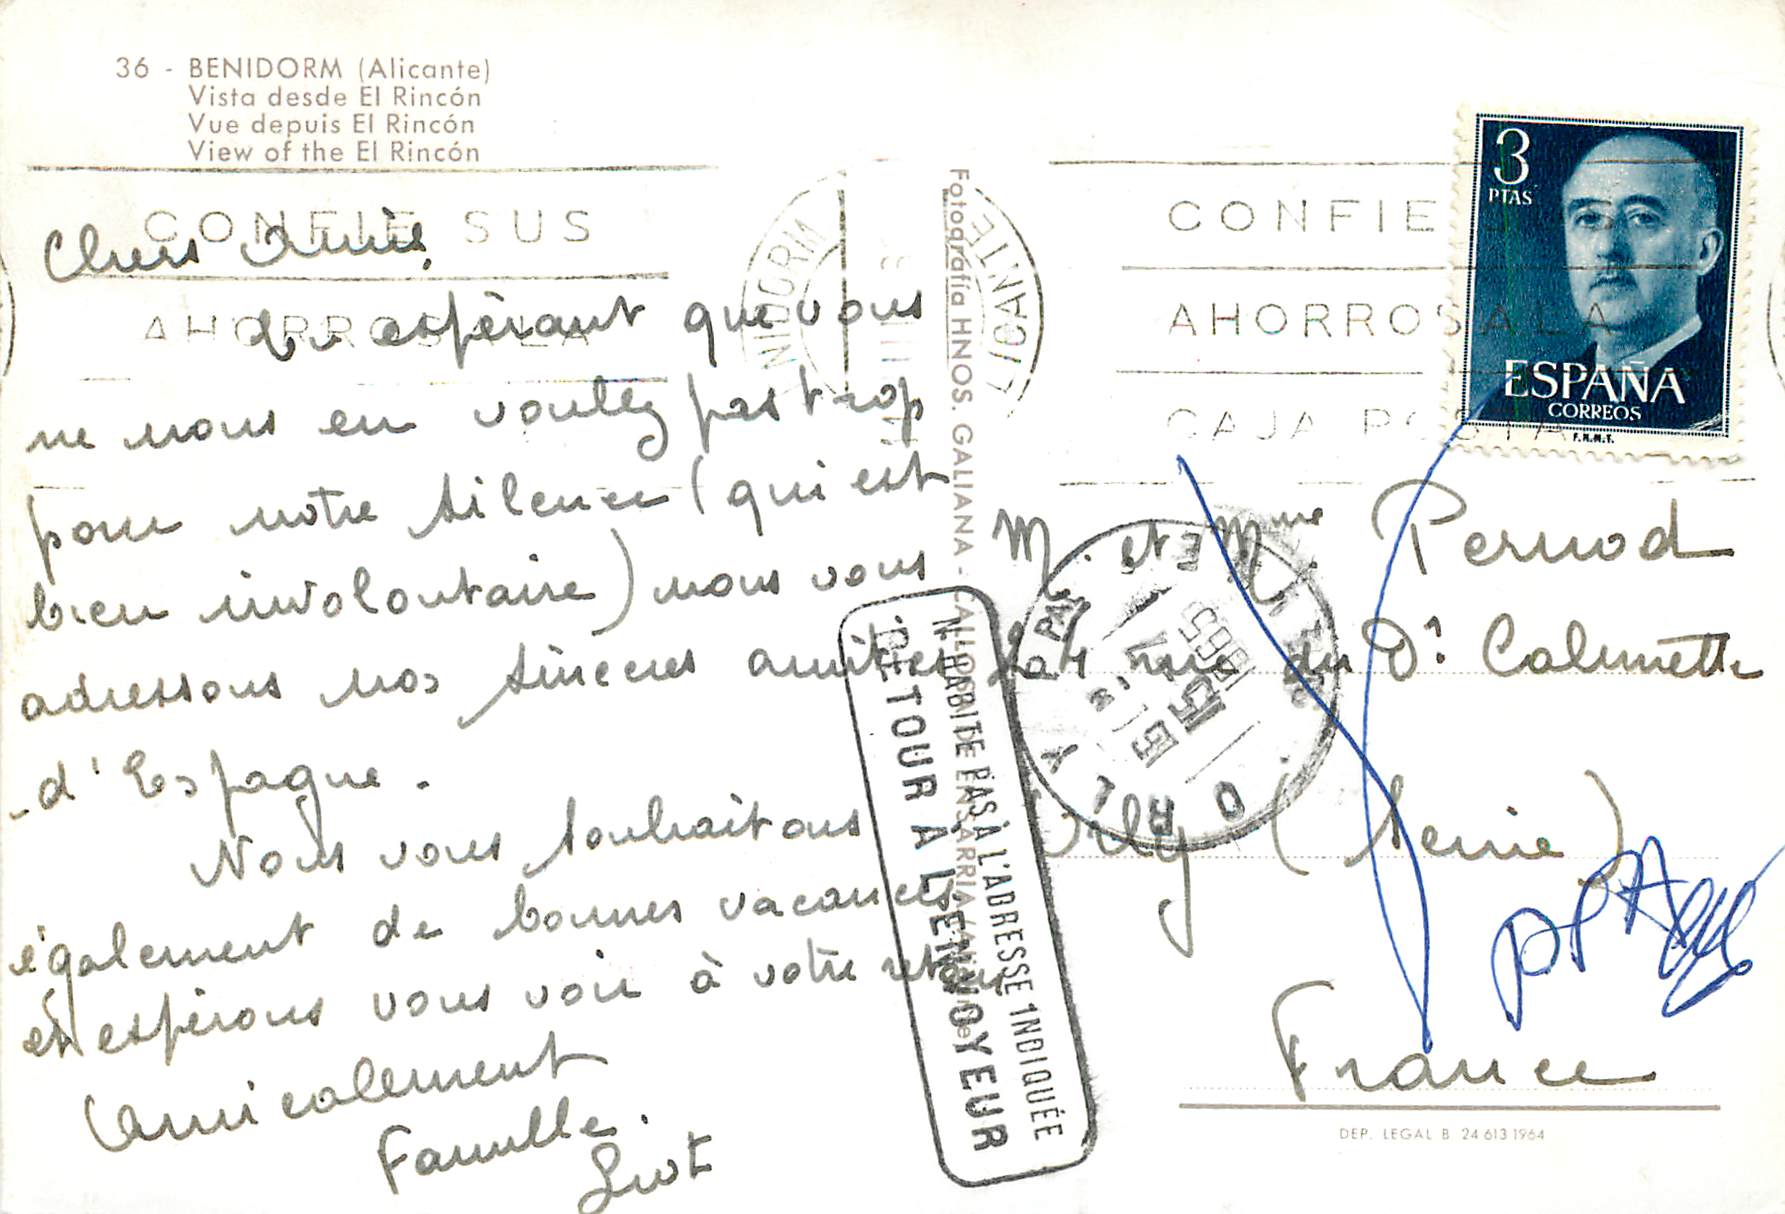 36 - BENIDORM (Alicante)
Vista desde El Rincón
Vue depuis El Rincón
View of the El Rincón
CONFIE SUS
AHORROS A LA
Chers Amis,
En espérant que vous
ne nous en voulez pas trop
pour notre silence (qui est
bien involontaire) nous vous
adressons nos sincères amitiés
d'Espagne.
Nous vous souhaitons
également de bonnes vacances
et espérons vous voir à votre retour
Amicalement
Famille
Fotografía HNOS. GALIANA - CALLOSA DE ENSARRIA
BENIDORM
ALICANTE
N'HABITE PAS À L'ADRESSE INDIQUÉE
RETOUR À L'ENVOYEUR
3
PTAS
ESPAÑA
CORREOS
F.N.M.T.
CONFIE
AHORROS A LA
CAJA POSTA
M. et Mme Pernod
rue du Dr Calmette
Orly (Seine)
France
ORLY
1965
DEP. LEGAL B. 24 613 1964